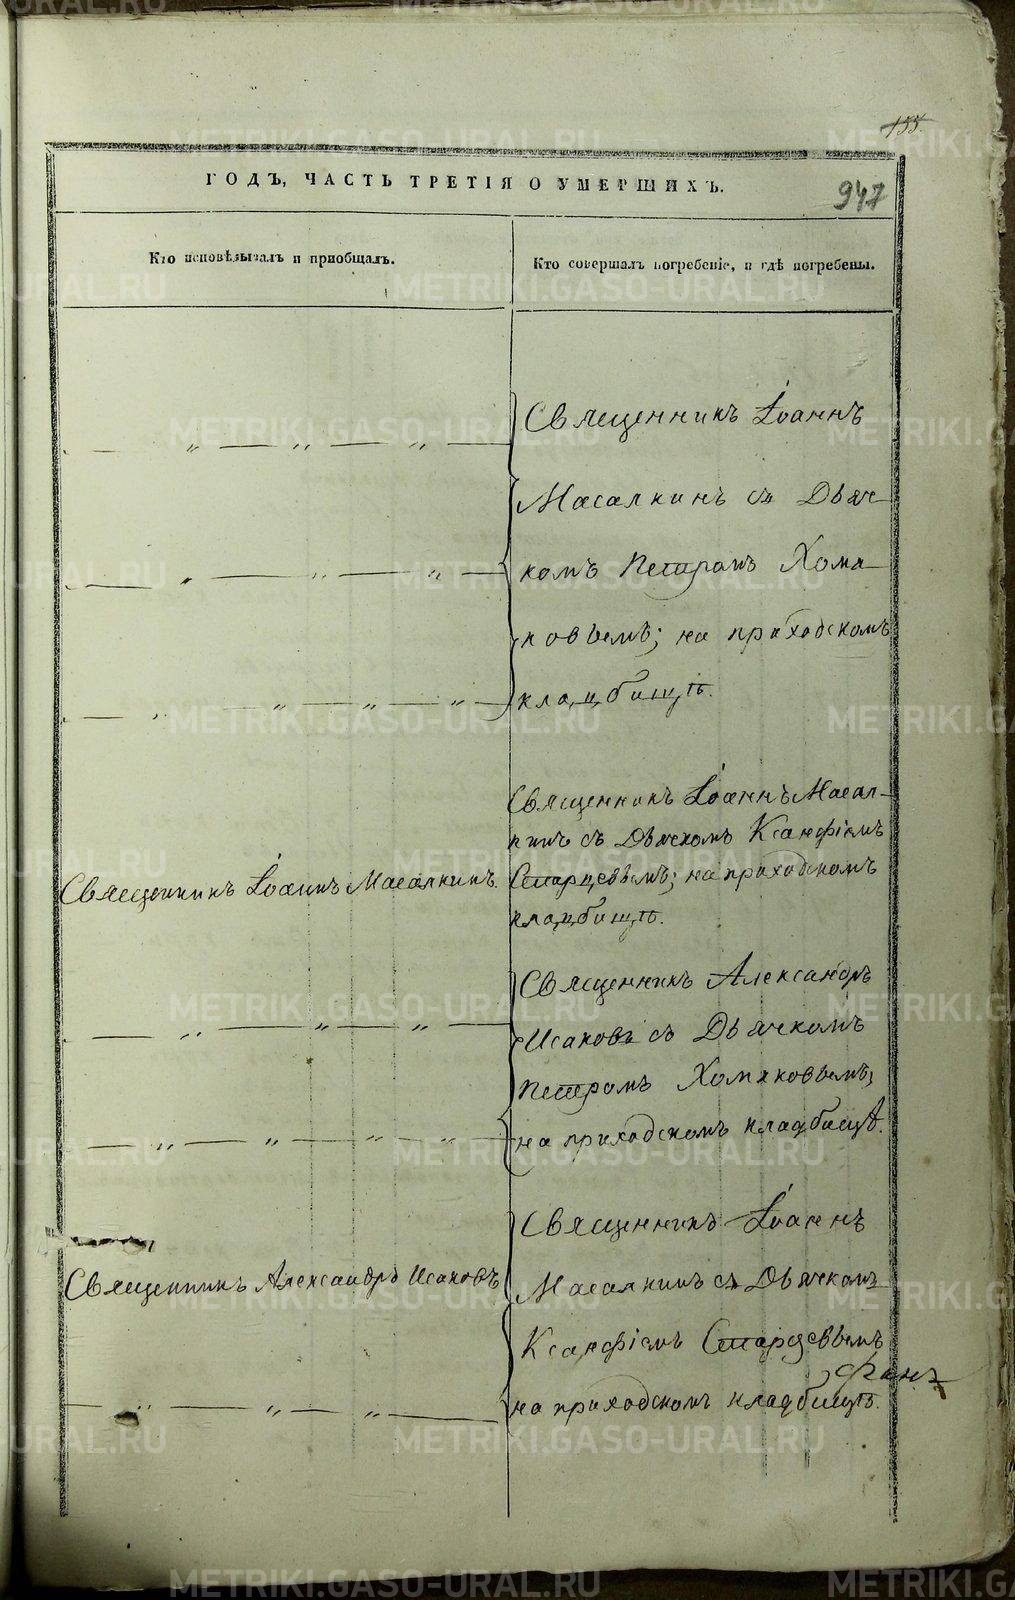 155.
ГОДЪ, ЧАСТЬ ТРЕТІЯ О УМЕРШИХЪ.
947
Кто исповѣдывалъ и пріобщалъ.
Кто совершалъ погребеніе, и гдѣ погребены.
Священникъ Іоаннъ
Масалкинъ съ Дьяч-
комъ Петромъ Хомя-
ковымъ; на приходскомъ
кладбищѣ.
Священникъ Іоаннъ Масалкинъ.
Священникъ Іоаннъ Масал-
кинъ съ Дьячкомъ Ксанфіемъ
Старцевымъ; на приходскомъ
кладбищѣ.
Священникъ Александръ
Исаковъ съ Дьячкомъ
Петромъ Хомяковымъ;
на приходскомъ кладбищѣ.
Священникъ Александръ Исаковъ
Священникъ Іоаннъ
Масалкинъ съ Дьячкомъ
Ксанфіемъ Старцевымъ
на приходскомъ кладбищѣ.
METRIKI.GASO-URAL.RU